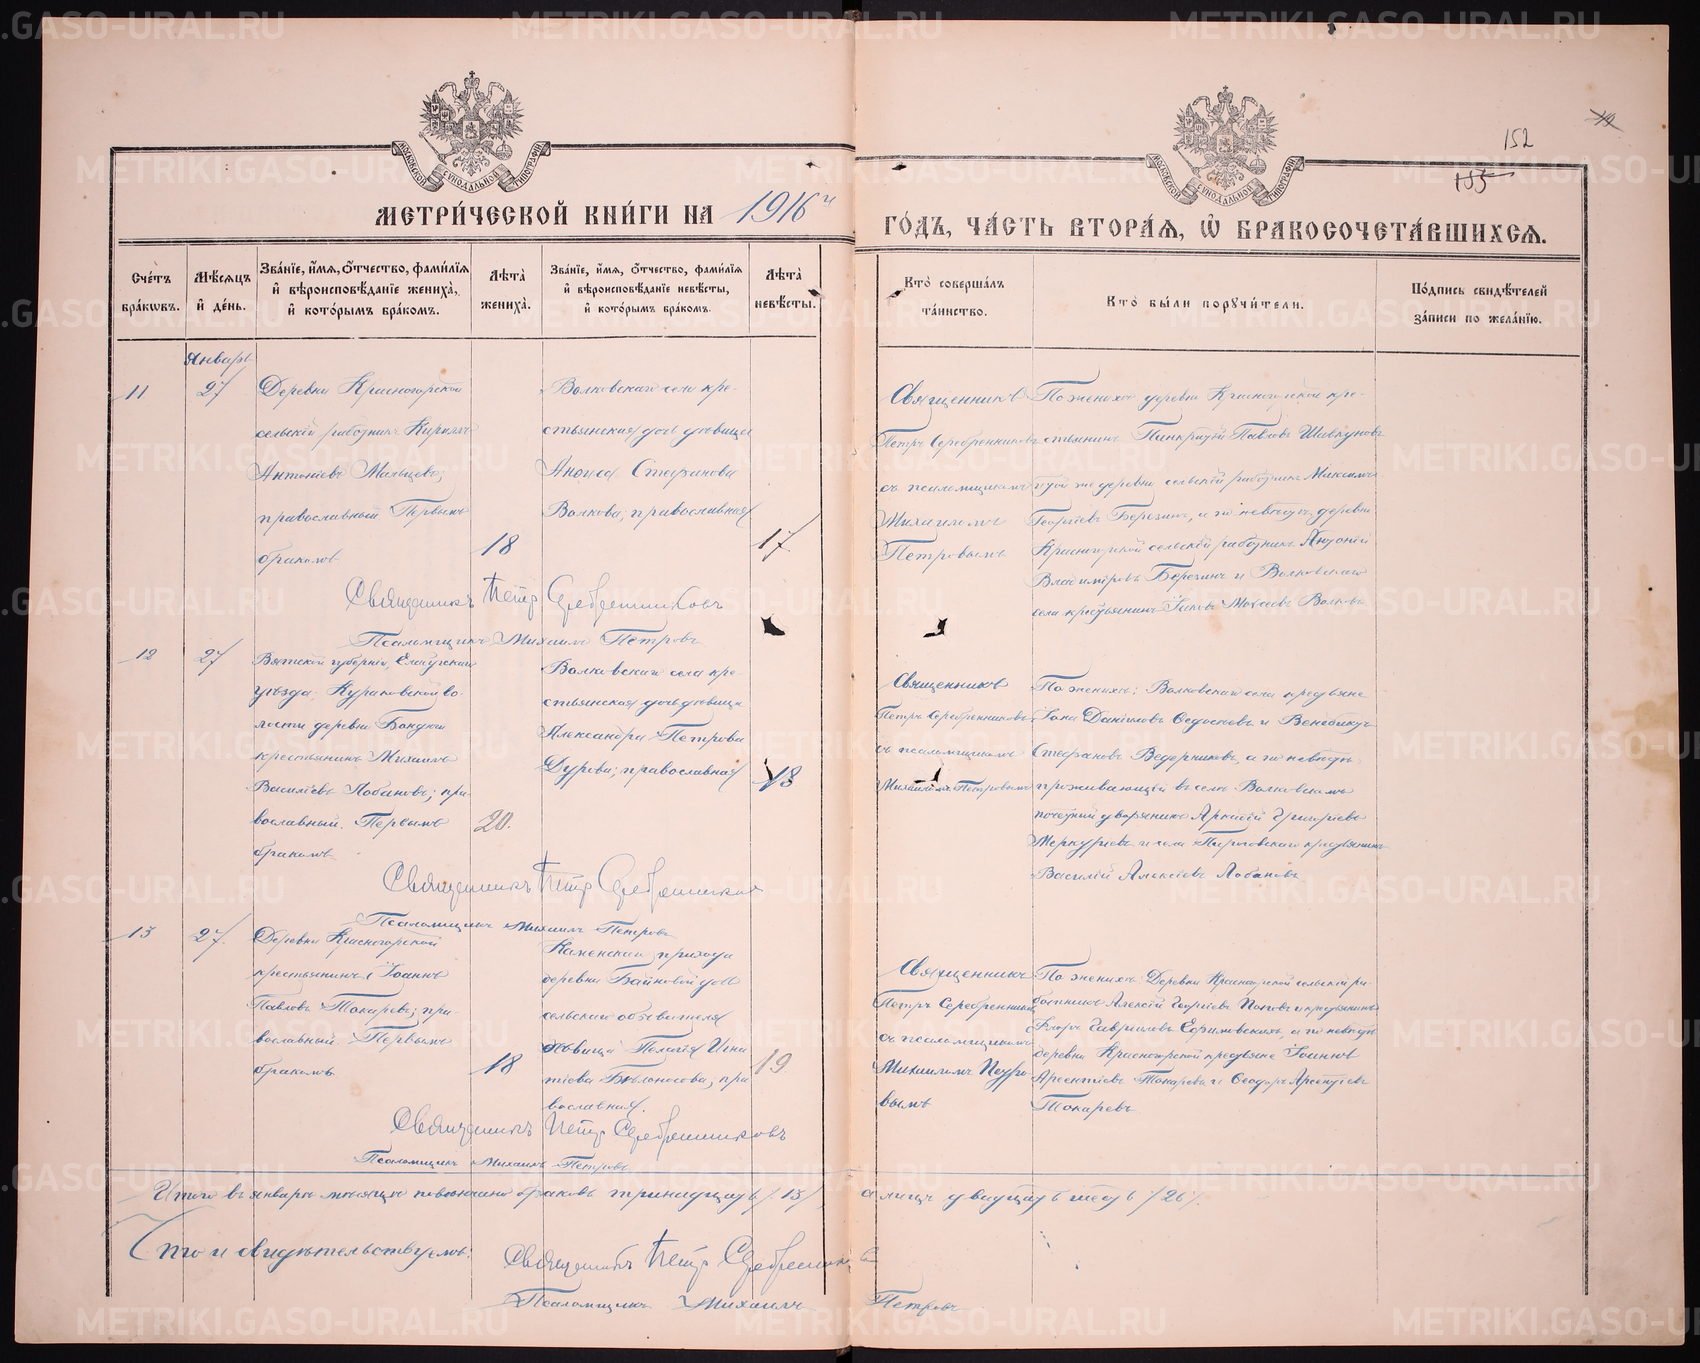 МЕТРИ́ЧЕСКОЙ КНИ́ГИ НА 1916 й
ГО́ДЪ, ЧА́СТЬ ВТОРА́Я, Ѡ БРАКОСОЧЕТА́ВШИХСЯ.
152
155
МОСКОВСКОЙ СУНОДАЛЬНОЙ ТИПОГРАФІИ
МОСКОВСКОЙ СУНОДАЛЬНОЙ ТИПОГРАФІИ
Сче́тъ бра́кωвъ.
Мѣ́сяцъ и҆ де́нь.
Зва́нїе, и҆́мя, ѻ҆́тчество, фами́лїя и҆ вѣроисповѣ́данїе жениха̀, и҆ кото́рымъ бра́комъ.
Лѣ́та жениха̀.
Зва́нїе, и҆́мя, ѻ҆́тчество, фами́лїя и҆ вѣроисповѣ́данїе невѣ́сты, и҆ кото́рымъ бра́комъ.
Лѣ́та невѣ́сты.
Кто̀ соверша́лъ та́инство.
Кто̀ бы́ли порꙋчи́тели.
По́дпись свидѣ́телей за́писи по жела́нїю.
Январь
11
27
Деревни Красногорской
сельскій работникъ Кириллъ
Антоніевъ Мальцевъ;
православный Первымъ
бракомъ
18
Волковскаго села кре-
стьянская дочь дѣвица
Анфиса Стефанова
Волкова; православная
17
Священникъ
Петръ Серебренниковъ
съ псаломщикомъ
Михаиломъ
Петровымъ
По женихѣ деревни Красногорской кре-
стьянинъ Панкратій Павловъ Шавкуновъ
и той же деревни сельскій работникъ Максимъ
Георгіевъ Березинъ, а по невѣстѣ, деревни
Красногорской сельскій работникъ Антоній
Владиміровъ Березинъ и Волковскаго
села крестьянинъ Іаковъ Моѵсеевъ Волковъ
Священникъ Петръ Серебренниковъ
Псаломщикъ Михаилъ Петровъ
12
27
Вятской губерніи, Елабужскаго
уѣзда Кураковской во-
лости деревни Бондюги
крестьянинъ Михаилъ
Василіевъ Лобановъ; пра
вославный. Первымъ
бракомъ
20.
Волковскаго села кре-
стьянская дочь дѣвица
Александра Петрова
Дурова; православная
18
Священникъ
Петръ Серебренниковъ
съ псаломщикомъ
Михаиломъ Петровымъ
По женихѣ: Волковскаго села крестьяне
Іона Даніиловъ Федосѣевъ и Венедиктъ
Стефановъ Ведерниковъ, а по невѣстѣ
проживающій въ селѣ Волковскомъ
Григоріевъ
Меркурьевъ и села Пироговскаго крестьянинъ
Василій Алексіевъ Лобановъ
Священникъ Петръ Серебренниковъ
Псаломщикъ Михаилъ Петровъ
13
27.
Деревни Красногорской
крестьянинъ Іоаннъ
Павловъ Токаревъ; пра
вославный. Первымъ
бракомъ
18
Каменскаго прихода
деревни Байновой дочь
сельскаго обывателя
дѣвица Пелагія Игна
тіева Бѣлоносова; пра
вославная.
19
Священникъ
Петръ Серебренниковъ
съ псаломщикомъ
Михаиломъ Петро
вымъ
По женихѣ Деревни Красногорской сельскій ра-
ботникъ Алексій Георгіевъ Поповъ и крестьянинъ
Флоръ Гавріиловъ Ефимовскихъ, а по невѣстѣ
деревни Красногорской крестьяне Іоаннъ
Арсентіевъ Токаревъ и Феодоръ Арсентіевъ
Токаревъ
Священникъ Петръ Серебренниковъ
Псаломщикъ Михаилъ Петровъ
Итого въ январѣ мѣсяцѣ повѣнчано браковъ тринадцать /13/, а лицъ двадцать шесть /26/.
Что и свидѣтельствуемъ:
Священникъ Петръ Серебренниковъ
Псаломщикъ Михаилъ Петровъ
METRIKI.GASO-URAL.RU